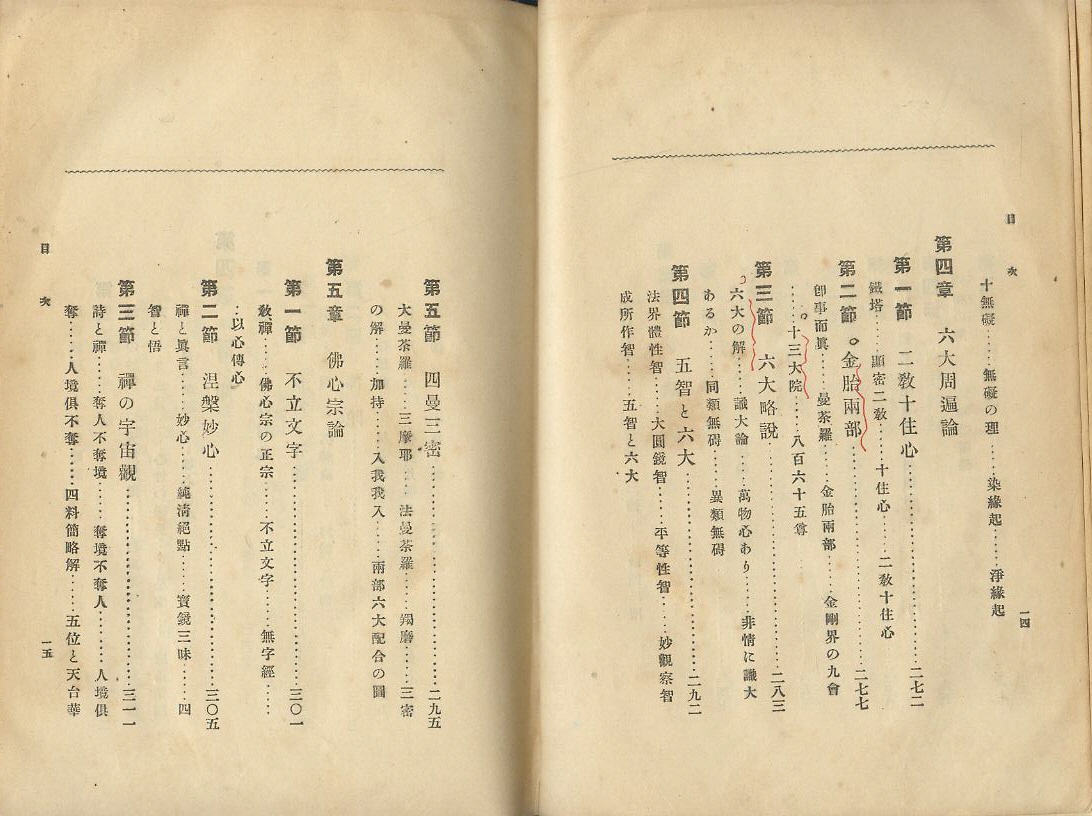 目次
一四
十無礙……無礙の理……染緣起……淨緣起
第四章 六大周遍論
第一節 二教十住心……二七二
鐵塔……顯密二教……十住心……二教十住心
第二節 金胎兩部……二七七
卽事而眞……曼荼羅……金胎兩部……金剛界の九會
……十三大院……八百六十五尊
第三節 六大略說……二八三
六大の解……識大論……萬物心あり……非情に識大
あるか……同類無碍……異類無碍
第四節 五智と六大……二九二
法界體性智……大圓鏡智……平等性智……妙觀察智
成所作智……五智と六大
第五節 四曼三密……二九五
大曼荼羅……三摩耶……法曼荼羅……羯磨……三密
の解……加持……入我我入……兩部六大配合の圖
第五章 佛心宗論
第一節 不立文字……三〇一
敎禪……佛心宗の正宗……不立文字……無字經……
…以心傳心
第二節 涅槃妙心……三〇五
禪と眞言……妙心……純淸絕點……寶鏡三昧……四
智と悟
第三節 禪の宇宙觀……三一一
詩と禪……奪人不奪境……奪境不奪人……人境俱
奪……人境俱不奪……四料簡略解……五位と天台華
目次
一五